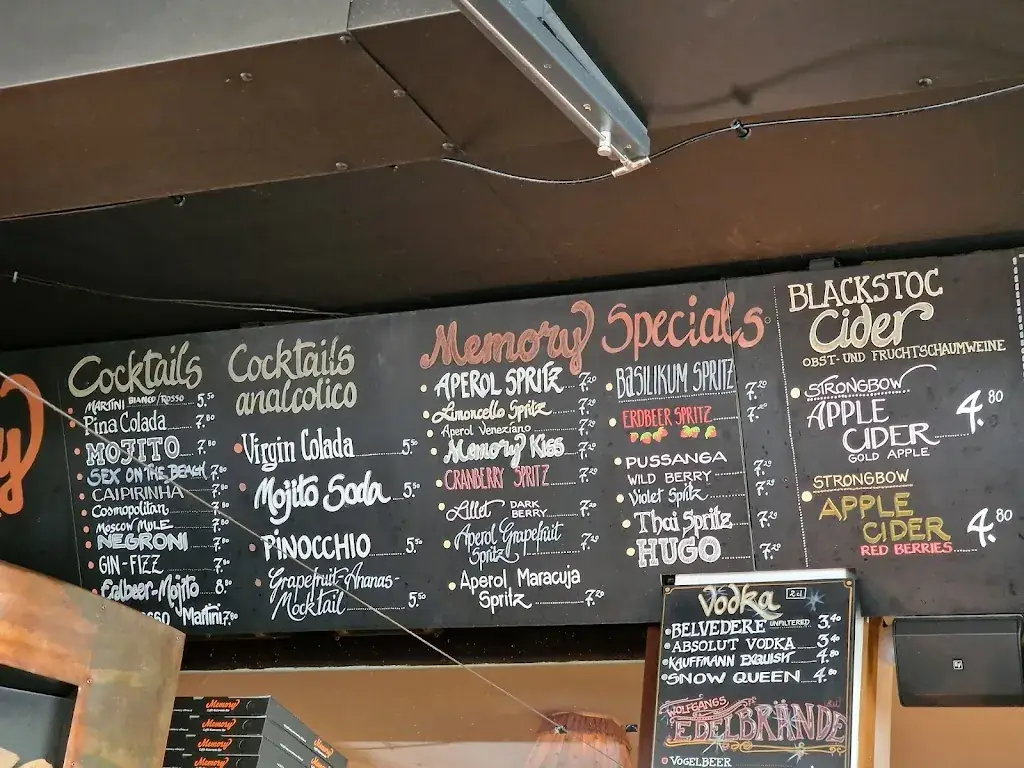 Cocktails
MARTINI BIANCO/ROSSO 5.50
Pina Colada 7.80
MOJITO 7.80
SEX ON THE BEACH 7.80
CAIPIRINHA 7.80
Cosmopolitan 7.80
MOSCOW MULE 7.80
NEGRONI 7.80
GIN-FIZZ 7.80
Erdbeer-Mojito 8.80
Martini 7.80
Cocktails
analcolico
Virgin Colada 5.50
Mojito Soda 5.50
PINOCCHIO 5.50
Grapefruit-Ananas-
Mocktail 5.50
Memory Specials
APEROL SPRITZ 7.20
Limoncello Spritz 7.20
Aperol Veneziano 7.20
Memory Kiss 7.20
CRANBERRY SPRITZ 7.20
Lillet DARK
BERRY 7.20
Aperol Grapefruit
Spritz 7.20
Aperol Maracuja
Spritz 7.20
BASILIKUM SPRITZ 7.20
ERDBEER SPRITZ 7.20
PUSSANGA
WILD BERRY 7.20
Violet Spritz 7.20
Thai Spritz 7.20
HUGO 7.20
BLACKSTOC
Cider
OBST- UND FRUCHTSCHAUMWEINE
STRONGBOW
APPLE
CIDER 4.80
GOLD APPLE
STRONGBOW
APPLE
CIDER 4.80
RED BERRIES
Vodka 2cl
BELVEDERE UNFILTERED 3.40
ABSOLUT VODKA 3.40
KAUFFMANN EXQUISIT 4.80
SNOW QUEEN 4.80
WOLFGANGS
EDELBRÄNDE
VOGELBEER
Memory
Memory
Memory
Memory